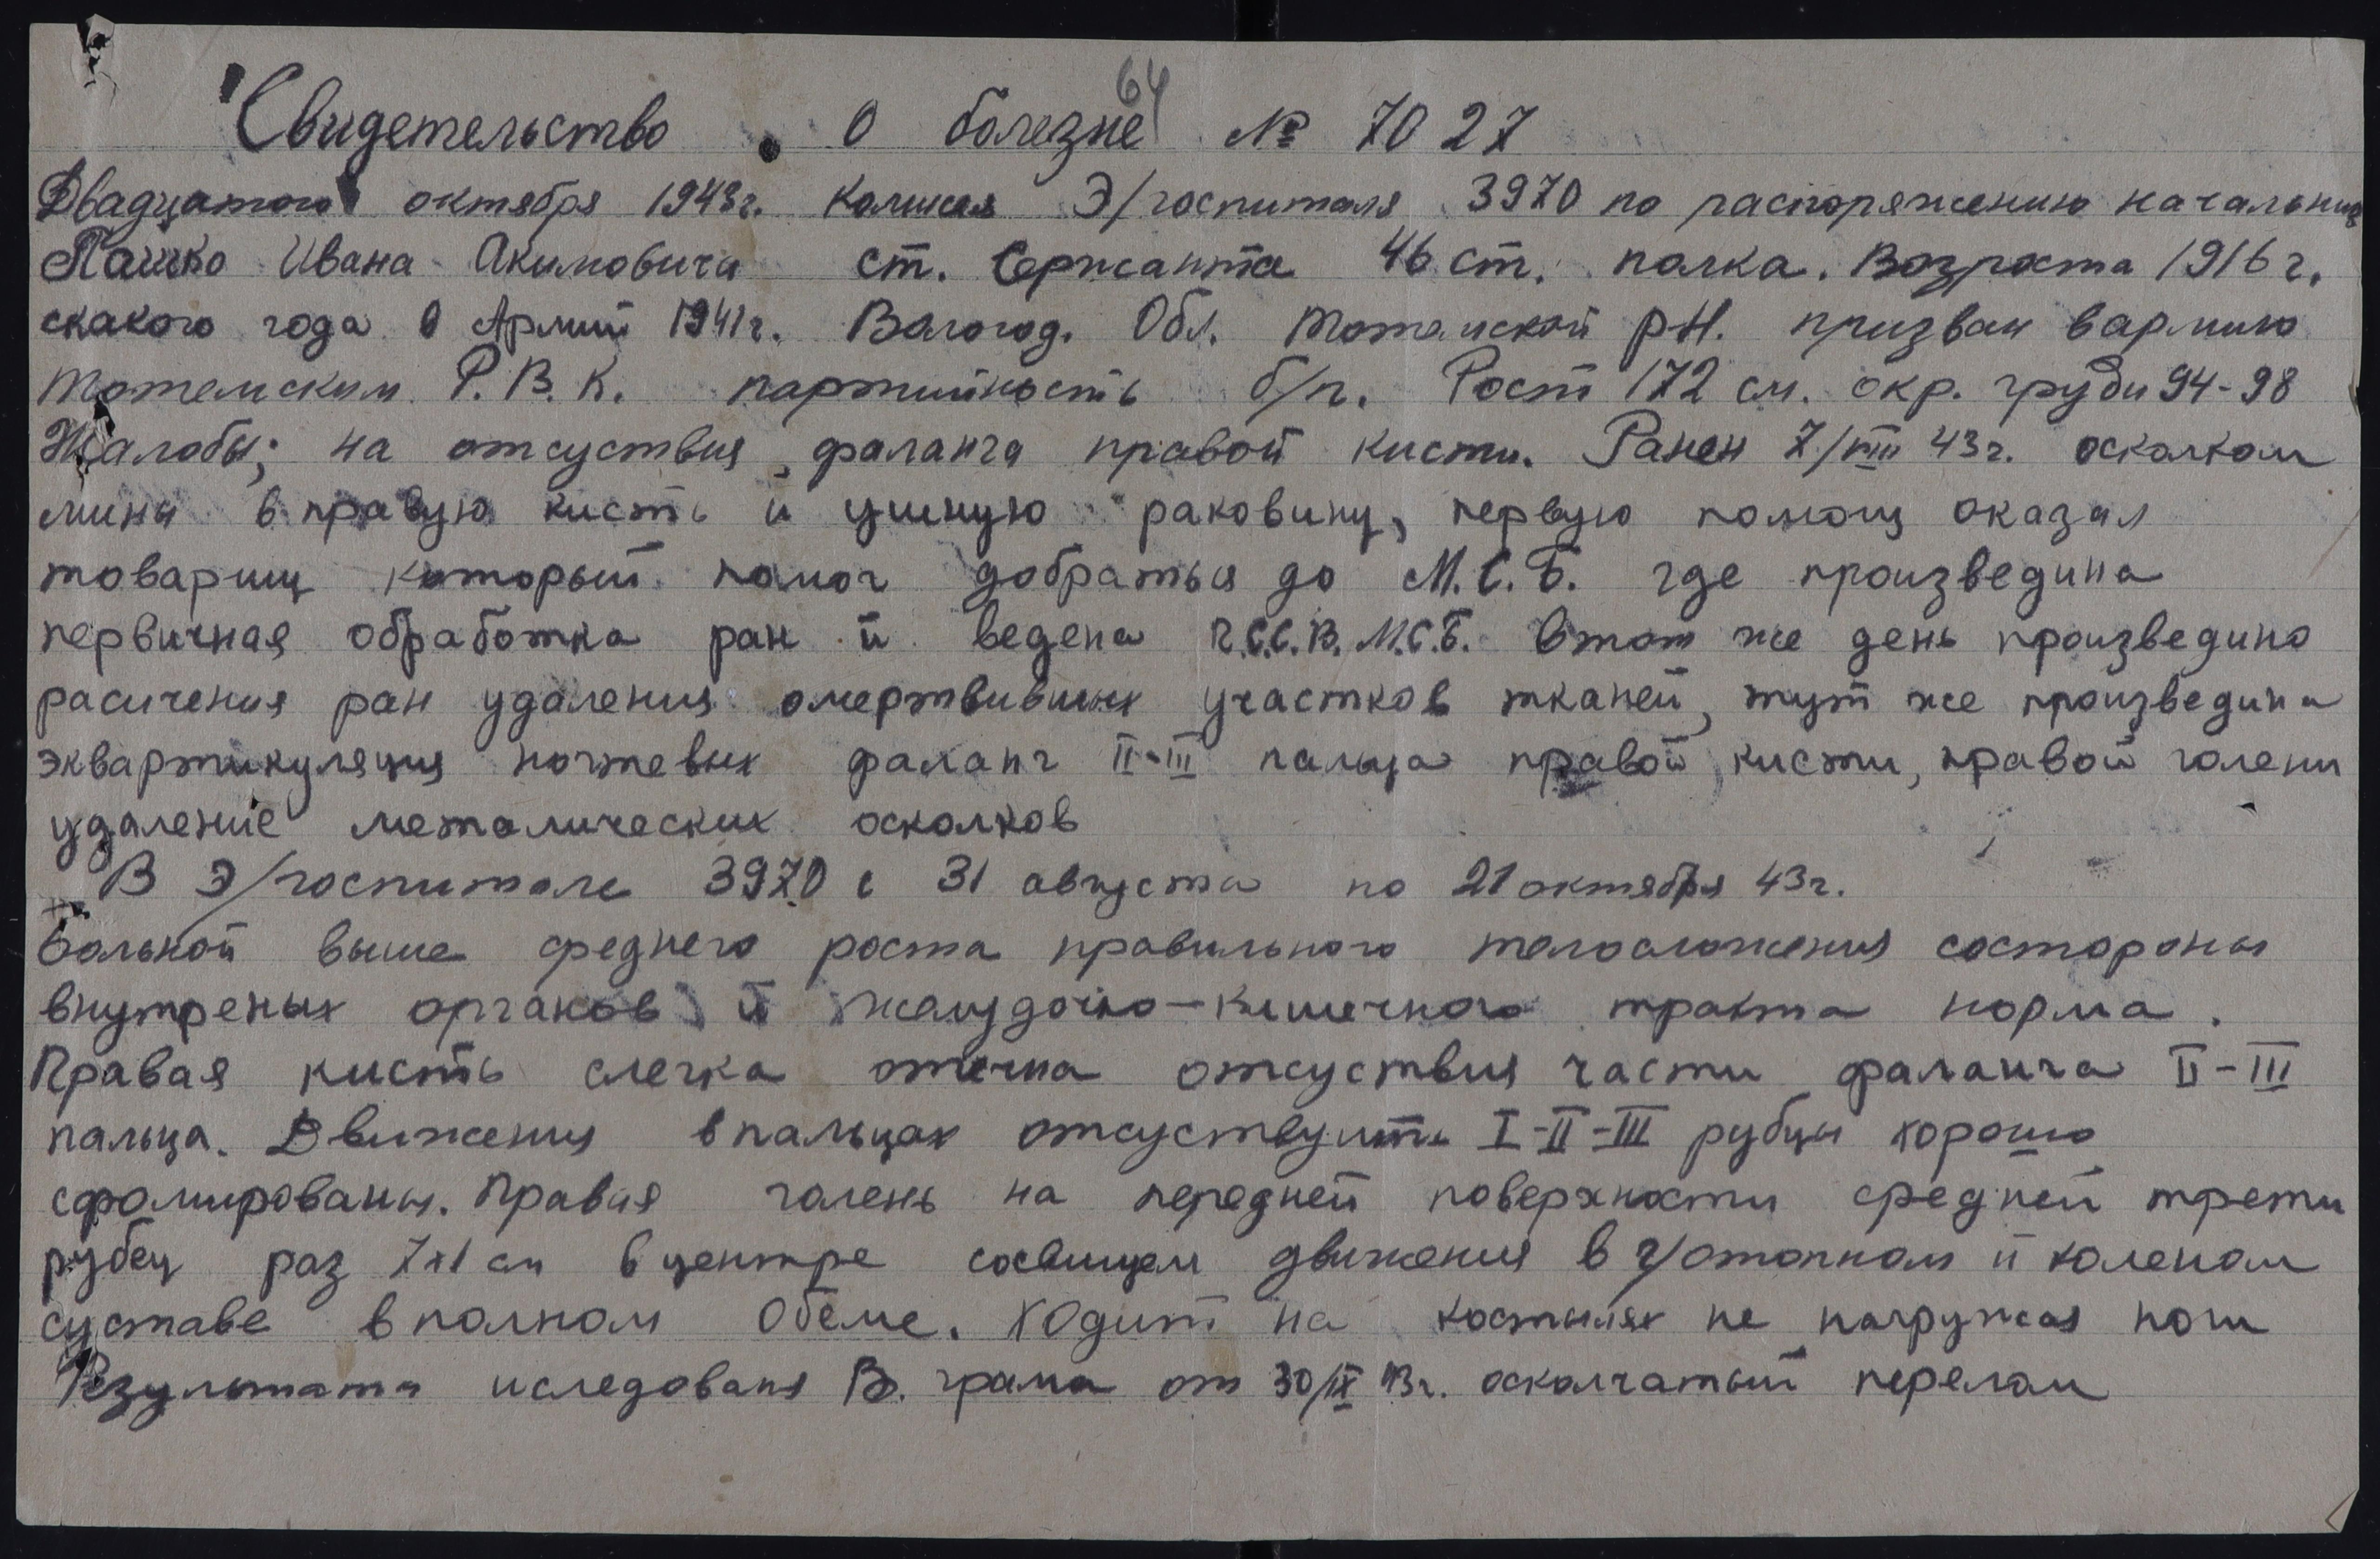 64
Свидетельство о болезне № 7027
Двадцатого октября 1943г. Комисия Э/госпиталя 3970 по распоряжению начальника
Пашко Ивана Акимовича ст. Сержанта 46 ст. полка. Возраста 1916 г.
скакого года в Армии 1941г. Вологод. Обл. Тотемской рН. призван вармию
Тотемским Р.В.К. партийность б/п. Рост 172 см. окр. груди 94-98
Жалобы; на отсуствия фаланга правой кисти. Ранен 7/VIII 43г. осколком
мины в правую кисть и ушную раковину, первую помощ оказал
товарищ который помог добраться до М.С.Б. где произведина
первичная обработка ран и ведена П.С.С.В. М.С.Б. Втот же день произведино
расичения ран удаления омертвивших участков тканей, тут же произведина
экзартикуляция ногтевых фаланг II-III пальца правой кисти, правой голени
удаление металических осколков
В Э/госпитале 3970 с 31 августа по 21 октября 43г.
Больной выше среднего роста правильного телосложения состороны
внутреных органов и желудочно-кишечного тракта норма.
Правая кисть слегка отечна отсуствия части фаланга II-III
пальца. Движения впальцах отсуствуить I-II-III рубцы хорошо
сфомированы. Правая голень на передней поверхности средней трети
рубец раз 7х1 см вцентре сосвищем движения в г/стопном и коленом
суставе вполном обеме. Ходит на костылях не нагружая ноги
Результаты иследования В. грама от 30/IX 43г. осколчатый перелом